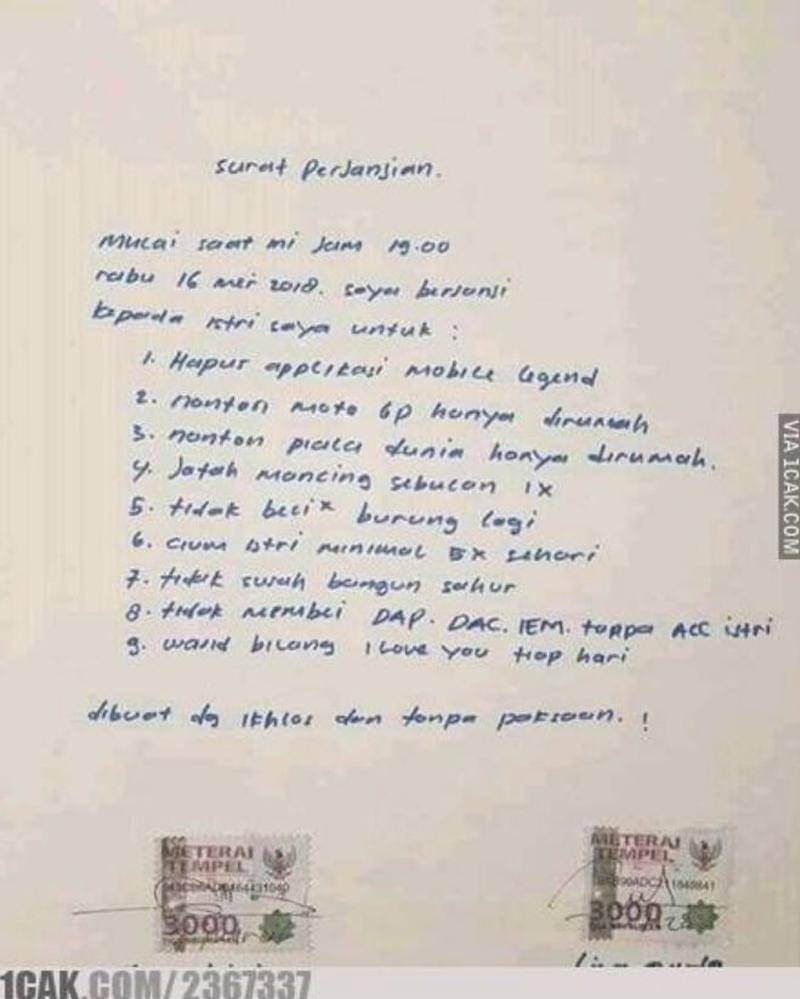 Surat Perjanjian.
Mulai saat ini Jam 19.00
rabu 16 mei 2018. saya berjanji
kepada istri saya untuk :
1. Hapus applikasi mobile legend
2. nonton moto GP hanya dirumah
3. nonton piala dunia hanya dirumah.
4. Jatah mancing sebulan 1x
5. tidak beli² burung lagi
6. cium istri minimal 5x sehari
7. tidak susah bangun sahur
8. tidak membeli DAP. DAC. IEM. tanpa ACC istri
9. wajib bilang I Love you tiap hari
dibuat dg ikhlas dan tanpa paksaan. !
METERAI
TEMPEL
3000
METERAI
TEMPEL
3000
VIA 1CAK.COM
1CAK.COM/2367337